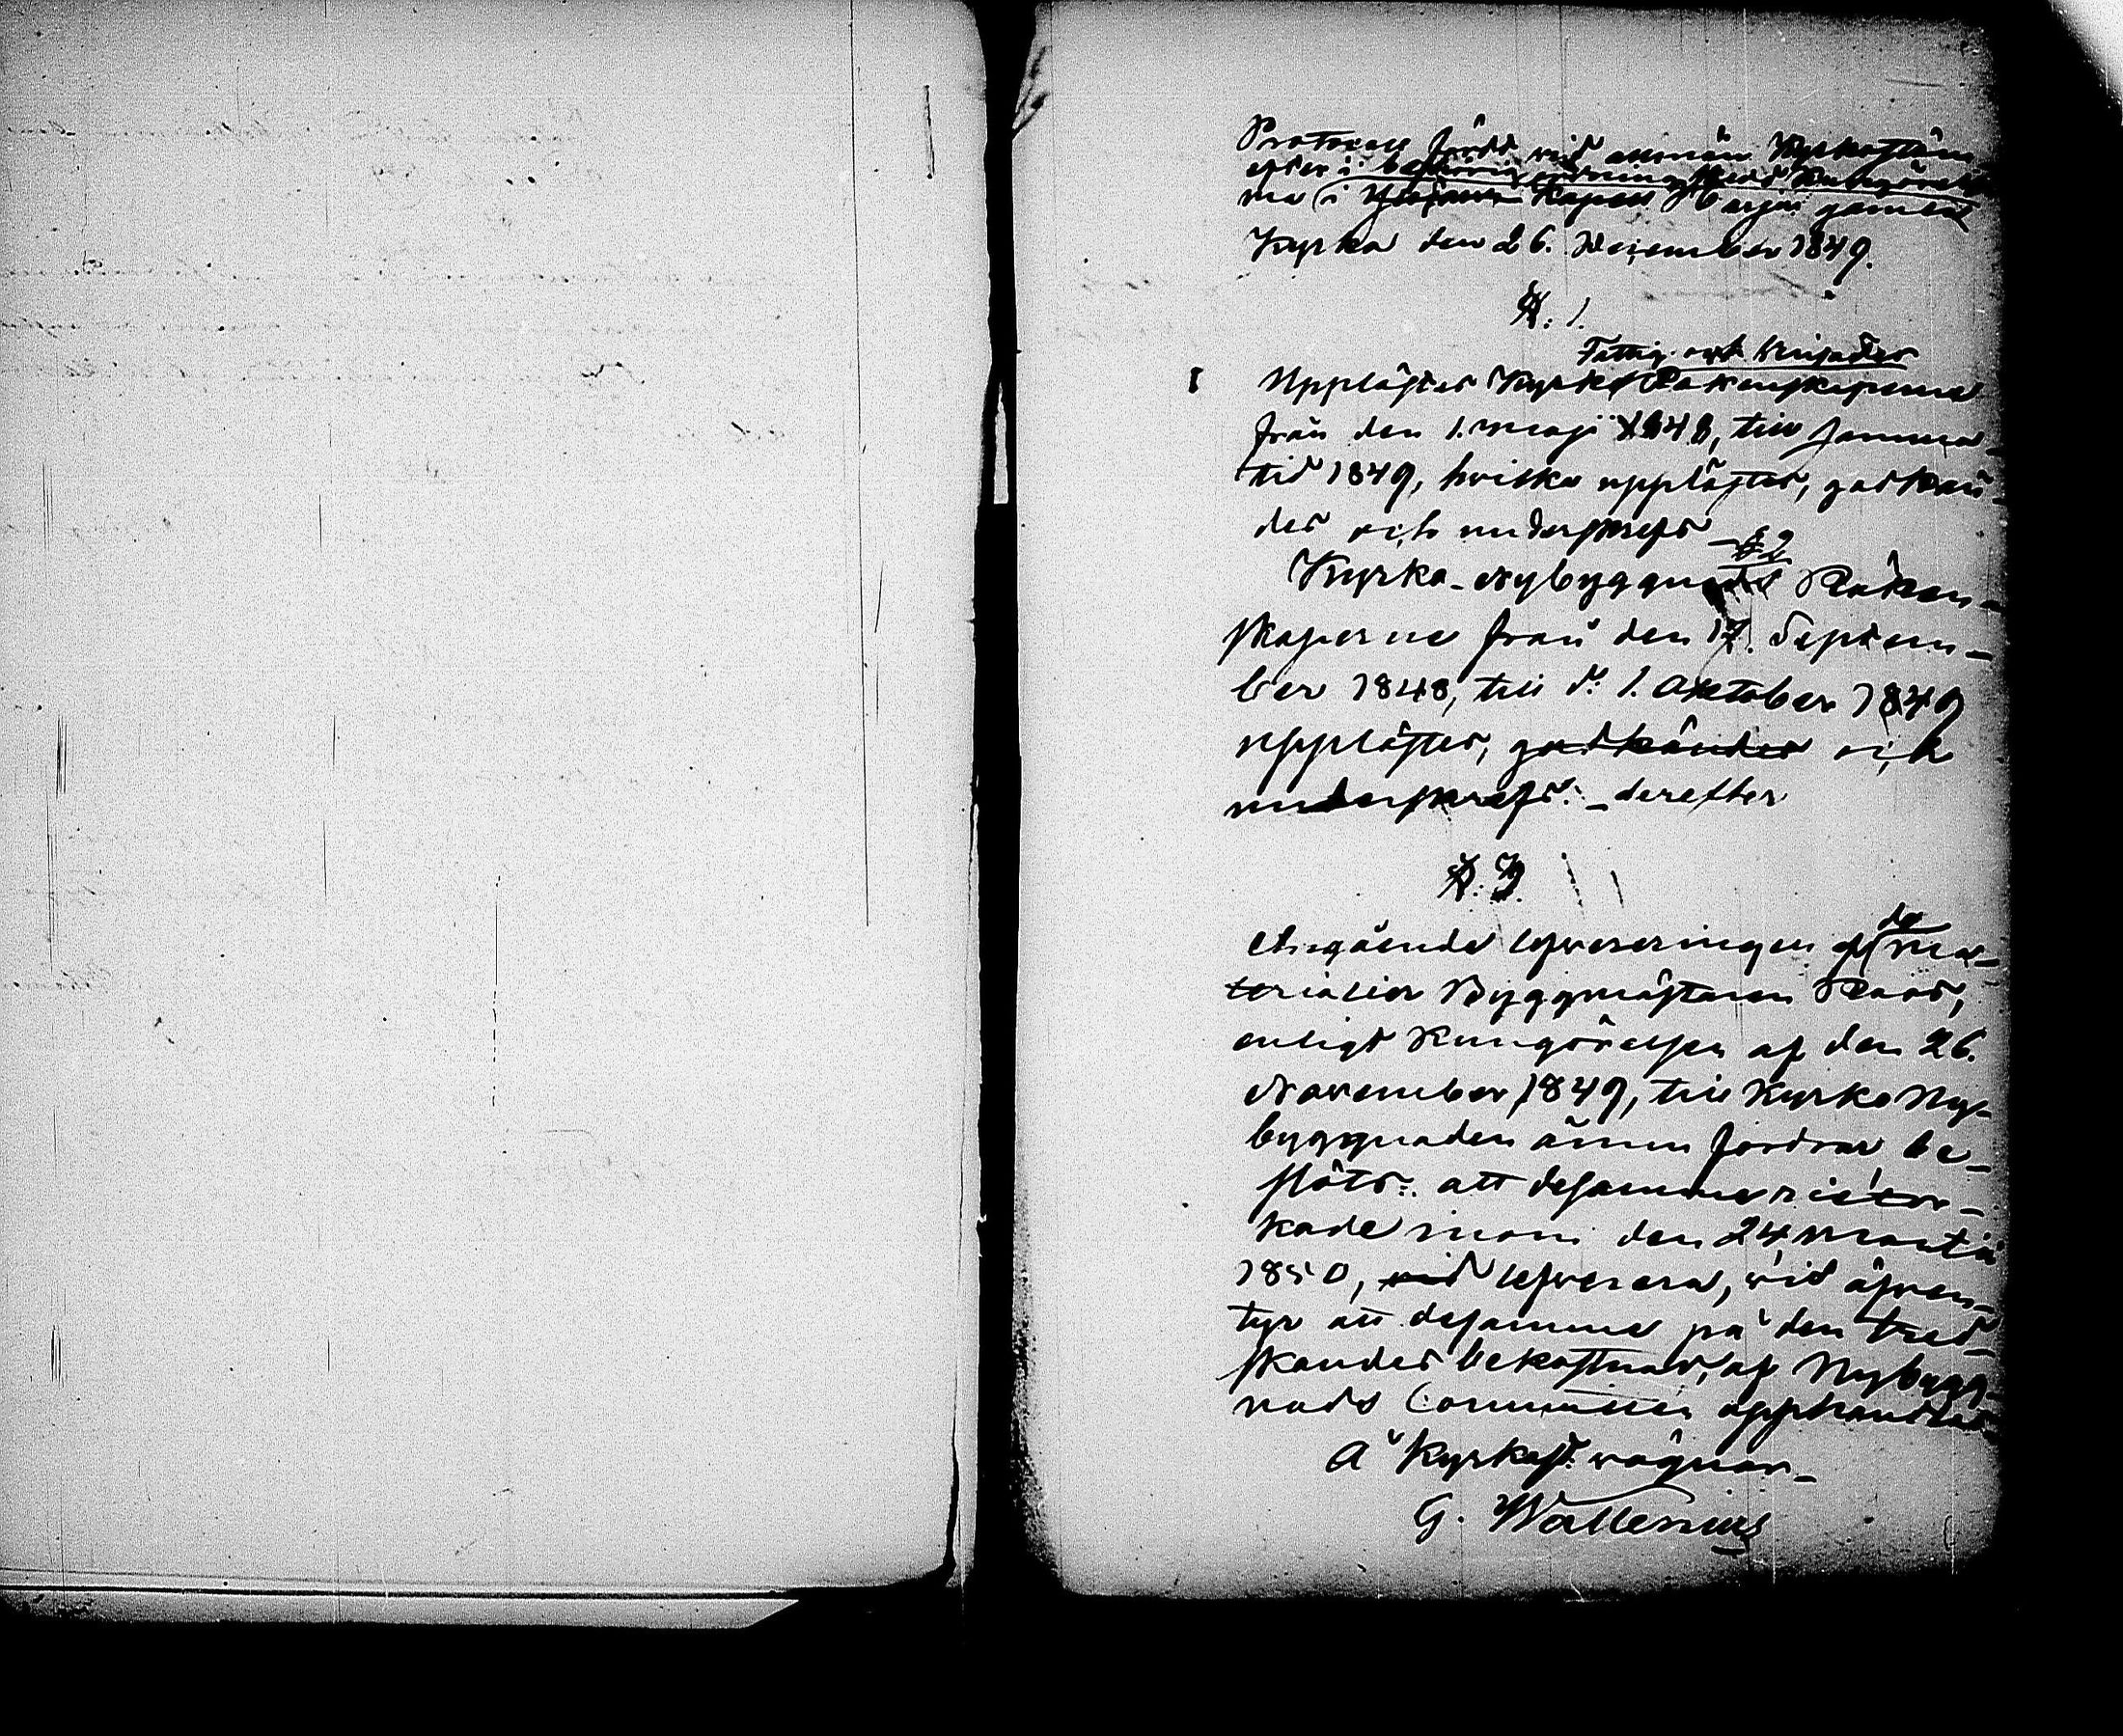 Protocoll fördt vid allmän Kyrkostäm-
efter i behörig ordning skedd Kungörelse
ma i Kapell gamla
Kyrka den 26. December 1849.
§. 1.
Fattig och
Upplästes Kyrko Räkenskaperne
från den 1. Maji 1848, till samma
tid 1849, hvilka upplästes, godkän-
des och underskrefs
§ 2
Kyrko-Nybyggnads Räken-
skaperne från den 17. Septem-
ber 1848, till d. 1. October 1849
upplästes, godkändes och
underskrefs. derefter
§. 3.
de
Angående lefvereringen af Ma-
terialier Byggmästaren
enligt Kungörelsen af den 26.
November 1849, till Kyrko Ny-
byggnaden ännu fordrar be-
slöts: att desamme
kade inom den 24 Martii
1850, vid leverera, vid äfven-
tyr att desamme på den tred-
skandes bekostnad, af Nybygg-
nads Committén upphandlas
Å Kyrkost. vägnar
G. Wallenius